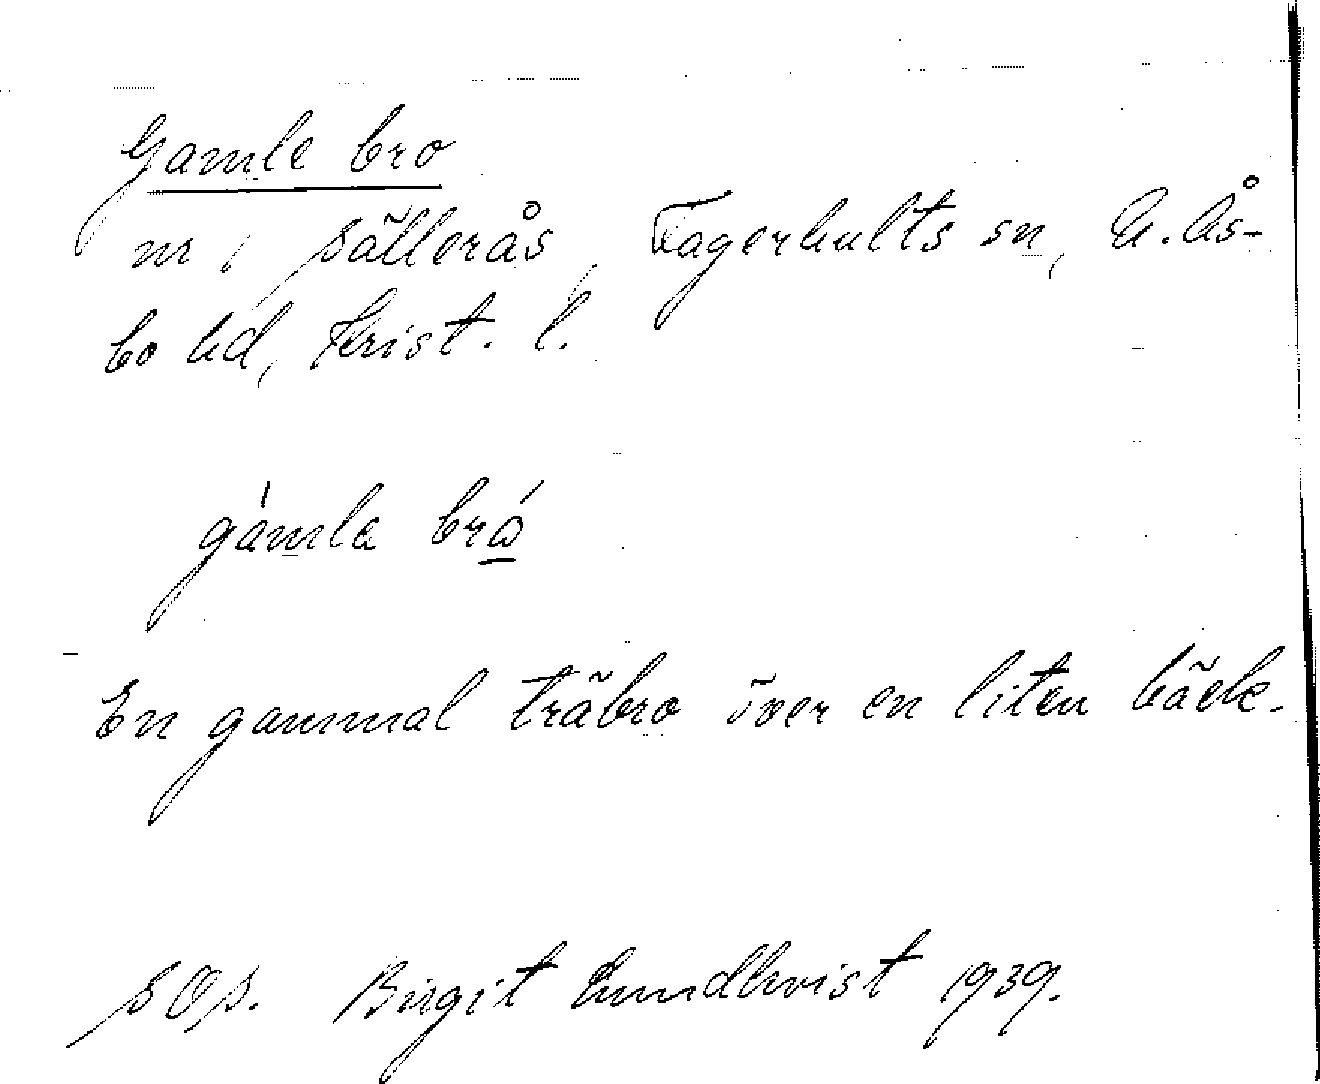 Gamle bro
nr 1 Sällerås, Fagerhults sn, N. Ås-
bo hd, Krist. l.
gámla bró
En gammal träbro över en liten bäck.
SOS. Birgit Lundkvist 1939.